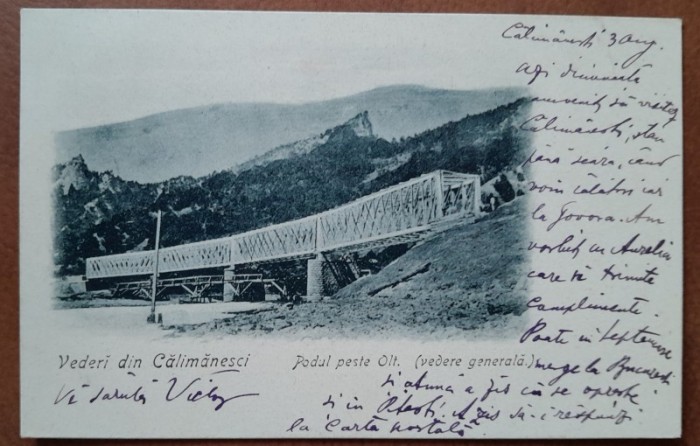 Călimănești 3 Aug.
azi dimineață
amvenit să vizitez
Călimănești, stau
până seara, când
voin călători iar
la Govora. Am
vorbit cu Aurelia
care vă trimite
complimente.
Poate în Septemvrie
merge la București
și atunci a zis că se oprește
și în Pitești. A zis să-i răspunzi
la carta postală
Vederi din Călimănesci
Podul peste Olt. (vedere generală.)
Vă sărută Victor